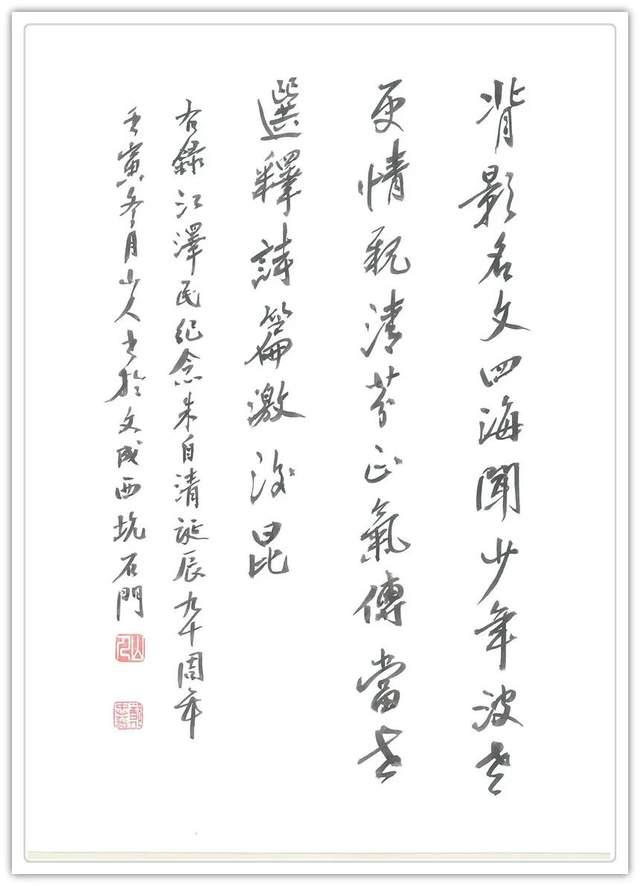 背影名文四海聞少年波老
更情親清芬正氣傳當世
選釋詩篇激後昆
右錄江澤民紀念朱自清誕辰九十周年
壬寅冬月山人書於文成西坑石門
山人